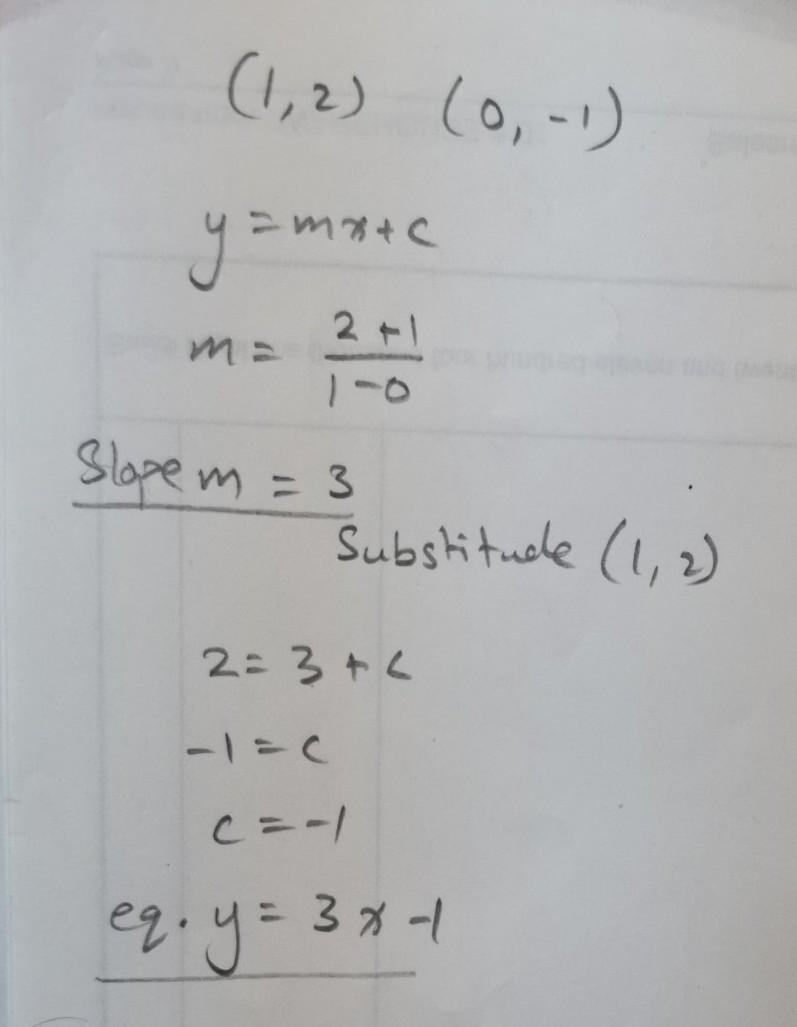 (1,2) (0,-1)
y = mx+c
m = 2+1
1-0
Slope m = 3
Substitude (1,2)
2 = 3 + c
-1 = c
c = -1
eq. y = 3x-1